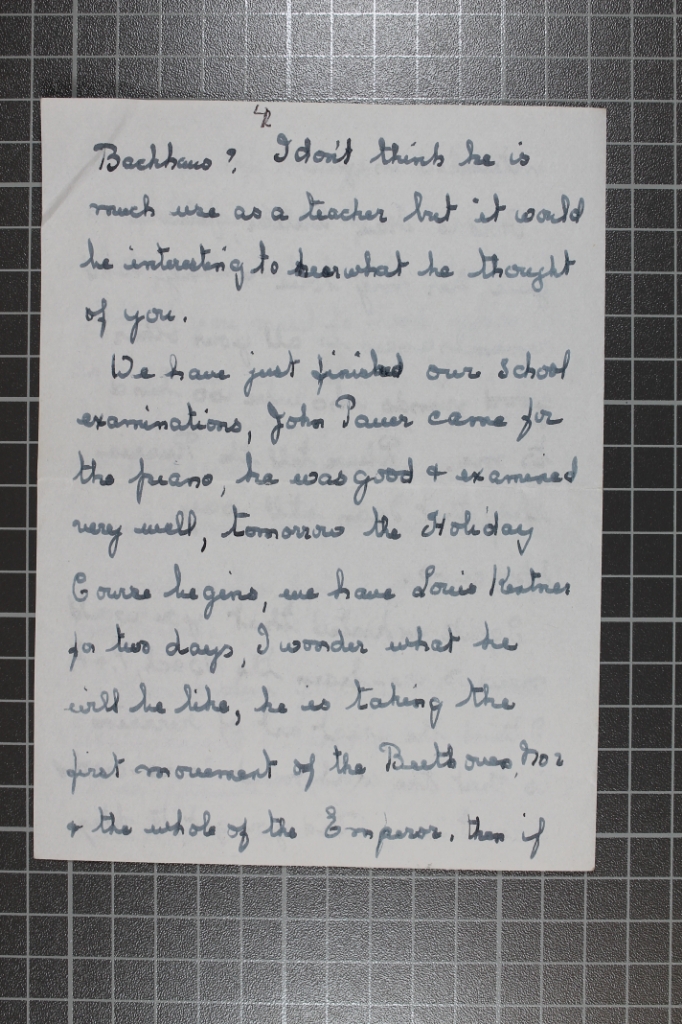 Backhaus? I don't think he is
much use as a teacher but it would
be interesting to hear what he thought
of you.
We have just finished our school
examinations, John Pauer came for
the piano, he was good & examined
very well, tomorrow the Holiday
Course begins, we have Louis Kentner
for two days, I wonder what he
will be like, he is taking the
first movement of the Beethoven, No 2
& the whole of the Emperor. then if